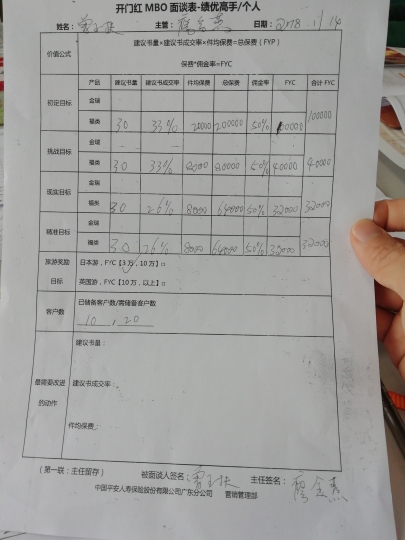 开门红 MBO 面谈表-绩优高手/个人
姓名： 主管： 日期：2018.1/14
价值公式 建议书量×建议书成交率×件均保费=总保费（FYP）
保费*佣金率=FYC
产品 建议书量 建议书成交率 件均保费 总保费 佣金率 FYC 合计 FYC
初定目标 金瑞
福类 30 33% 20000 200000 50% 100000 100000
挑战目标 金瑞
福类 30 33% 8000 80000 50% 40000 40000
现实目标 金瑞
福类 30 26% 8000 64000 50% 32000 32000
精准目标 金瑞
福类 30 26% 8000 64000 50% 32000 32000
旅游奖励目标 日本游，FYC【3万，10万】□
英国游，FYC【10万，以上】□
客户数 已储备客户数/需储备客户数
10 , 20
最需要改进的动作 建议书量：
建议书成交率：
件均保费：
（第一联：主任留存） 被面谈人签名： 主任签名：
中国平安人寿保险股份有限公司广东分公司 营销管理部